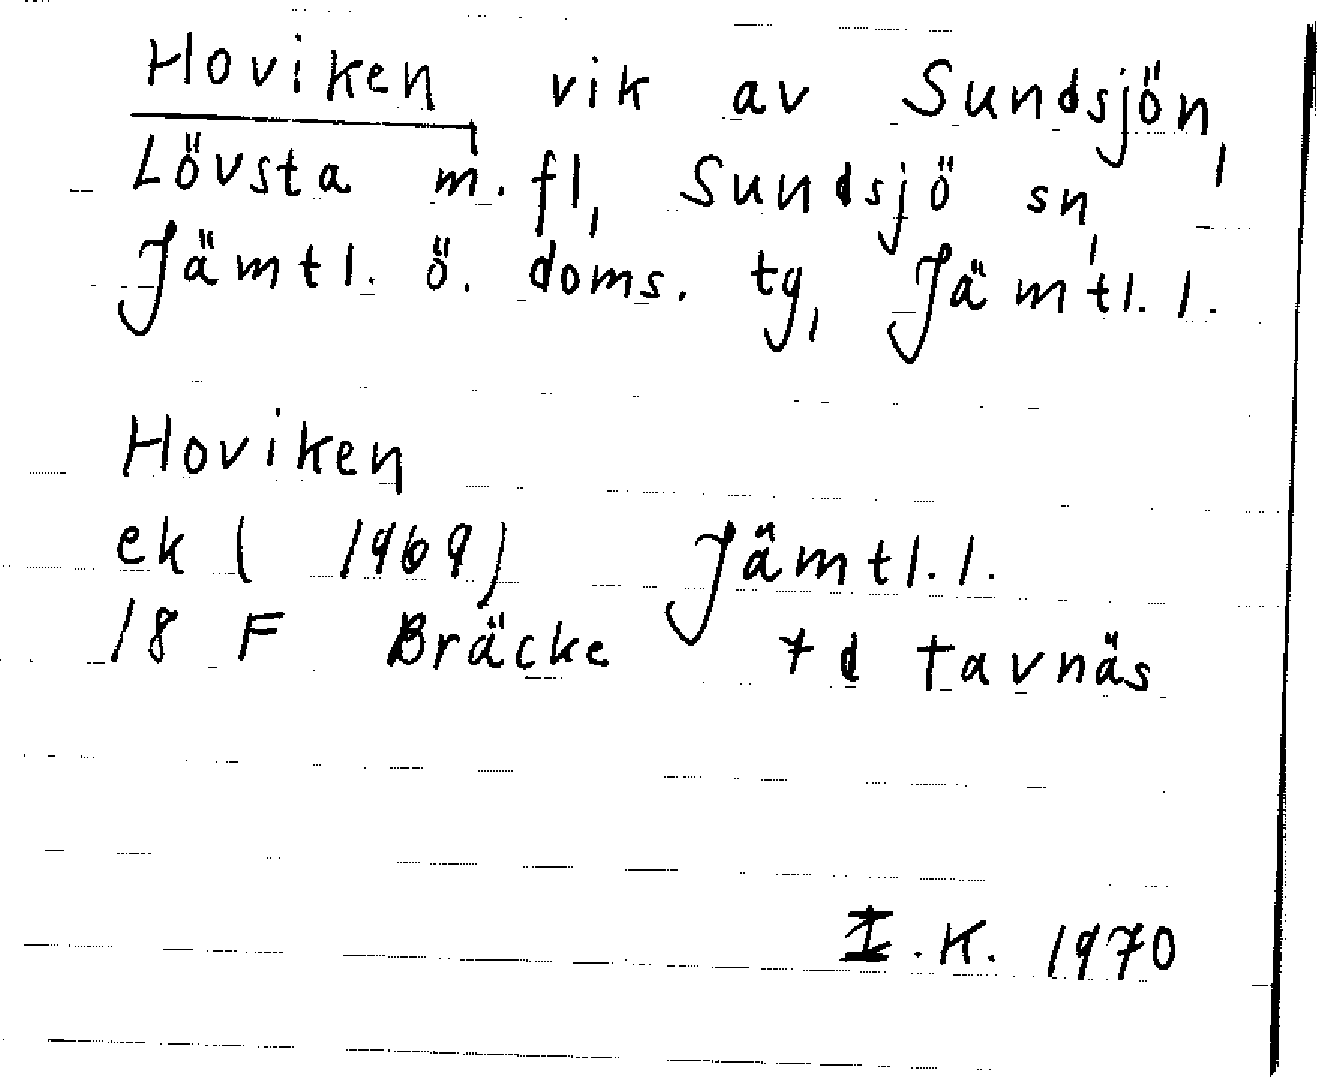 Hoviken vik av Sundsjön,
Lövsta m.fl, Sundsjö sn,
Jämtl. ö. doms. tg, Jämtl. l.
Hoviken
ek (1969) Jämtl. l.
18 F Bräcke 7 d Tavnäs
I.K. 1970